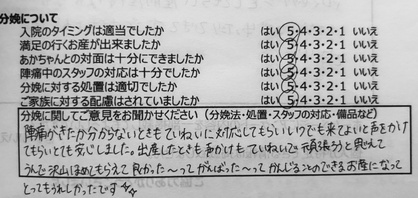 分娩について
入院のタイミングは適当でしたか はい 5・4・3・2・1 いいえ
満足の行くお産が出来ましたか はい 5・4・3・2・1 いいえ
あかちゃんとの対面は十分にできましたか はい 5・4・3・2・1 いいえ
陣痛中のスタッフの対応は十分でしたか はい 5・4・3・2・1 いいえ
分娩に対する処置は適切でしたか はい 5・4・3・2・1 いいえ
ご家族に対する配慮はされていましたか はい 5・4・3・2・1 いいえ
分娩に関してご意見をお聞かせください（分娩法・処置・スタッフの対応・備品など）
陣痛がきたか分からないときもていねいに対応してもらいいつでも来てよいと声をかけ
てもらいとても安心しました。出産したときも声かけもていねいで頑張ろうと思えて
うんで沢山ほめてもらえて良かった〜ってがんばった〜ってかんじることのできるお産になって
とってもうれしかったです